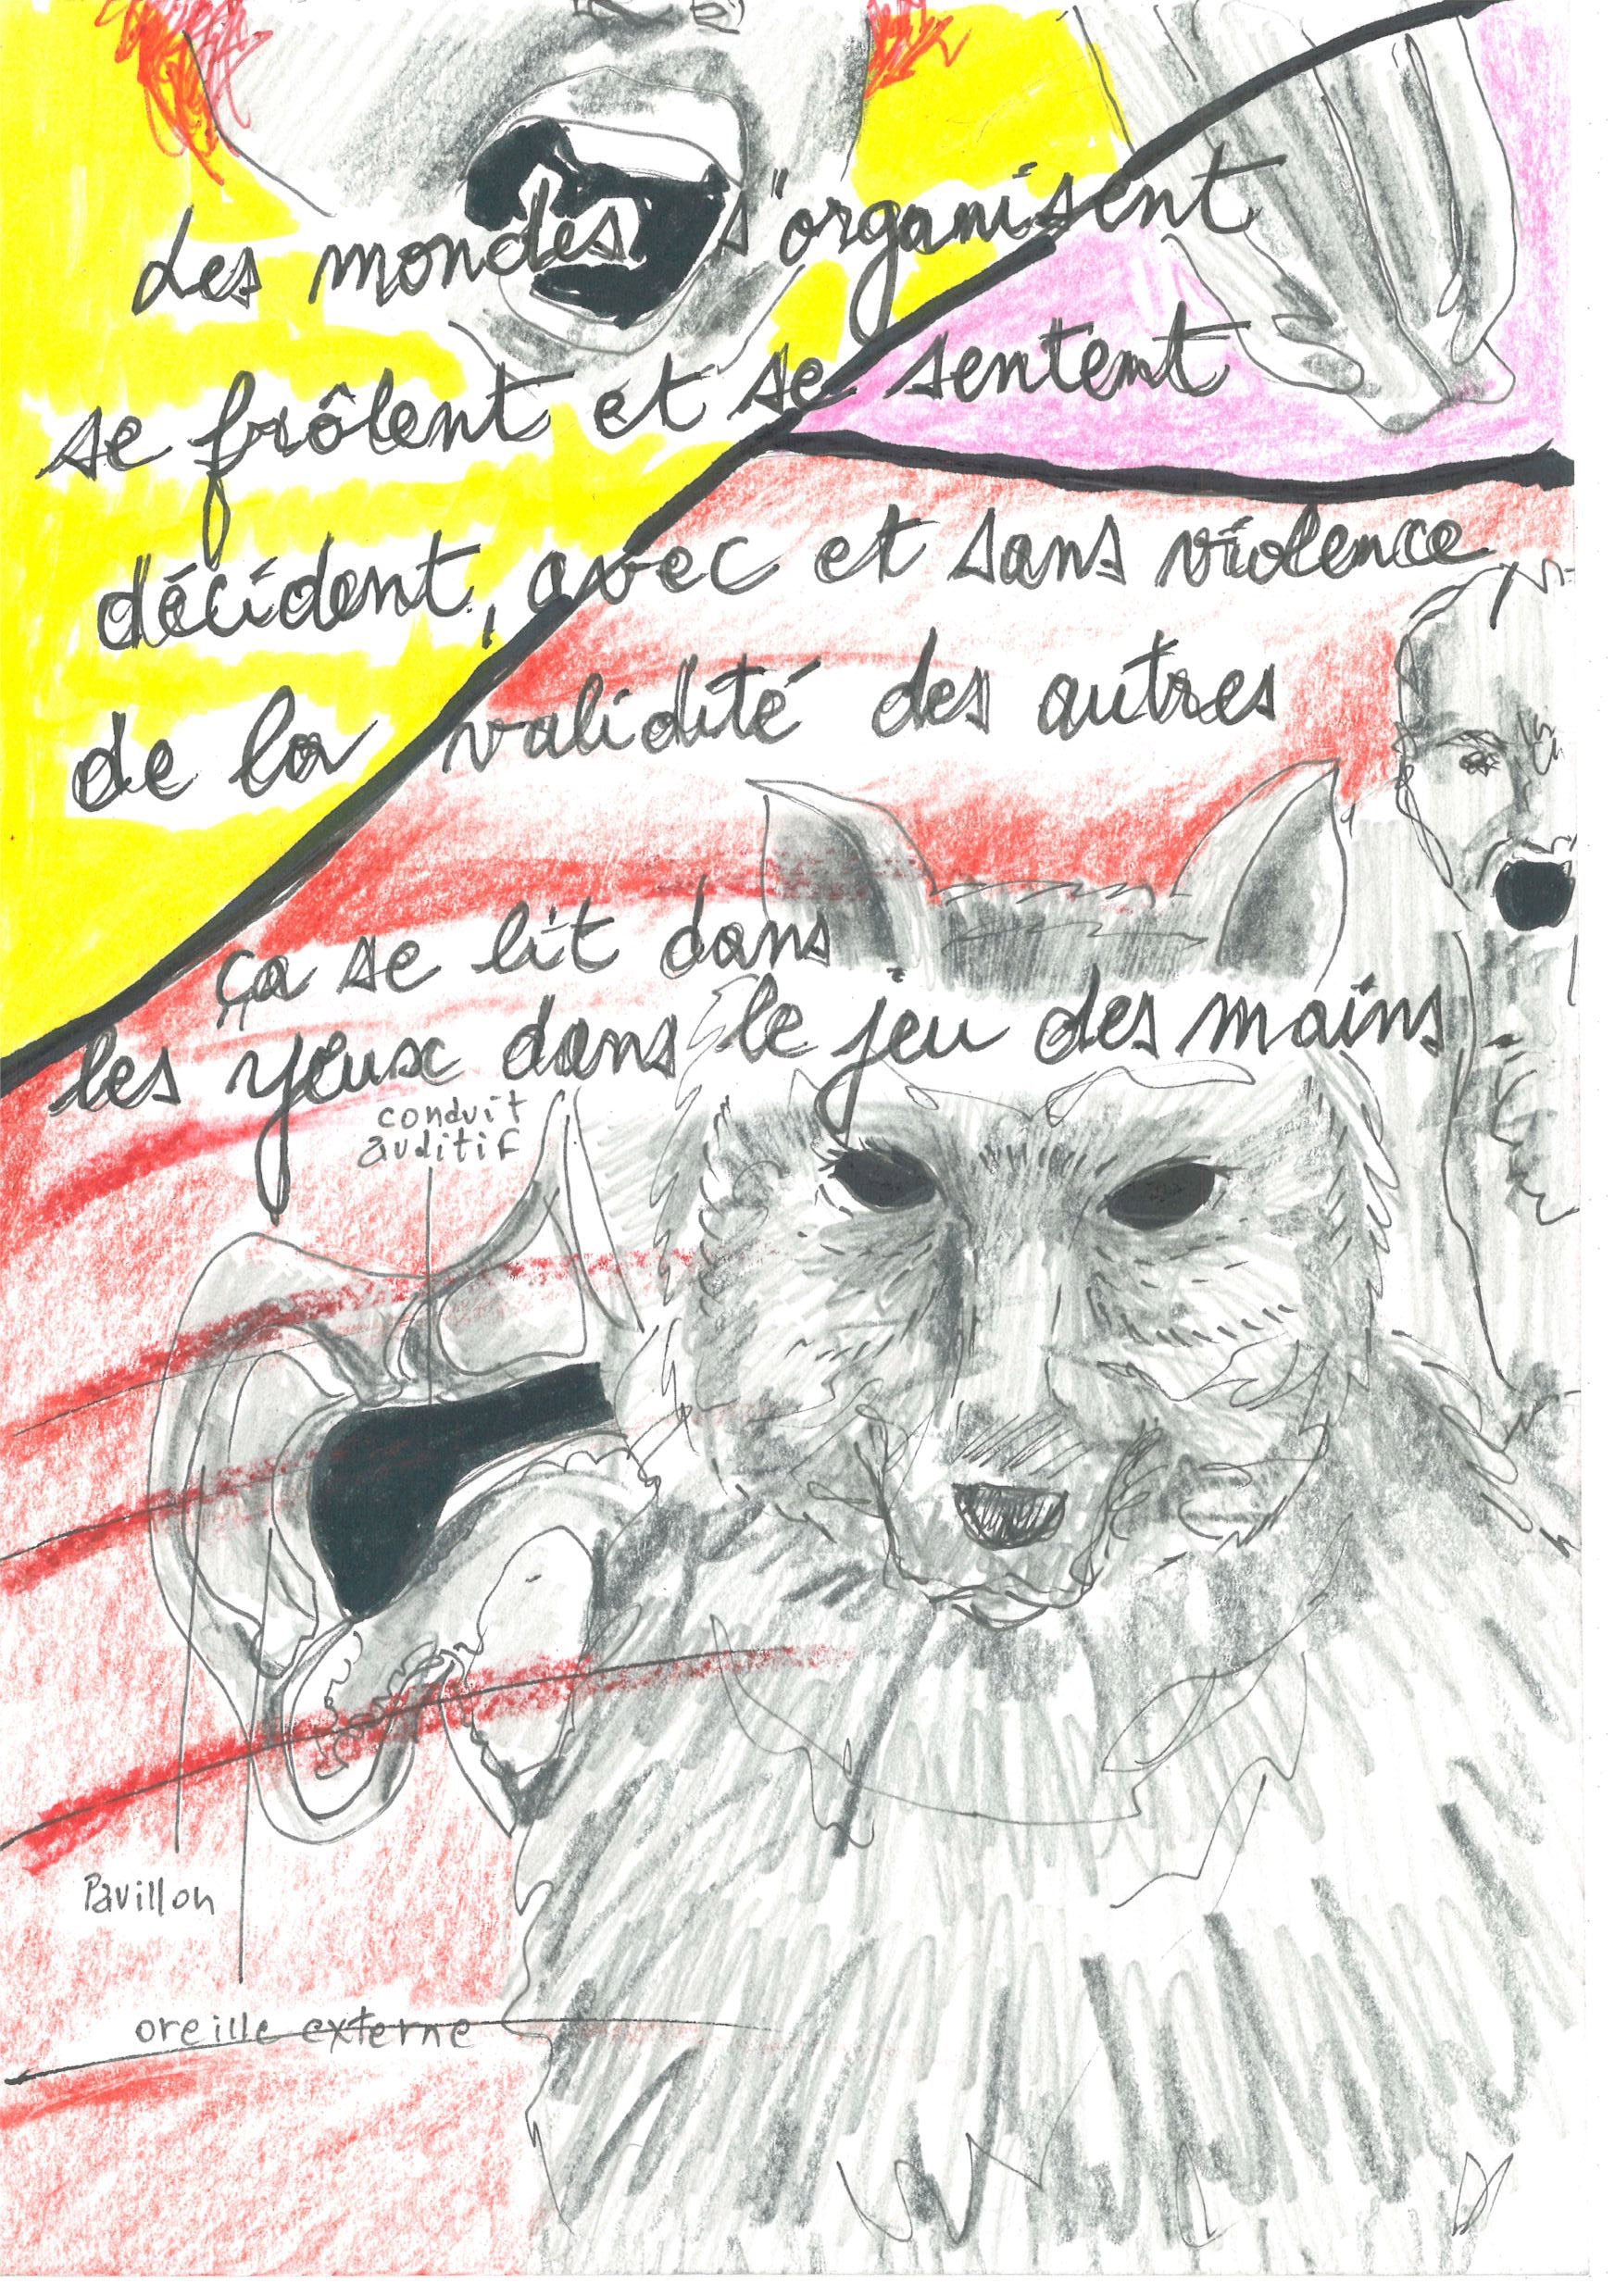 des mondes s'organisent
se frôlent et se sentent
décident, avec et sans violence
de la validité des autres
ça se lit dans
les yeux dans le jeu des mains
conduit
auditif
Pavillon
oreille externe